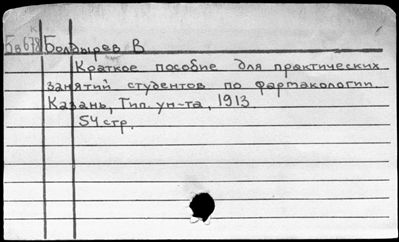 к
Бв678 Болдырев В
Краткое пособие для практических
занятий студентов по фармакологии.
Казань, Тип. ун-та, 1913.
54 стр.